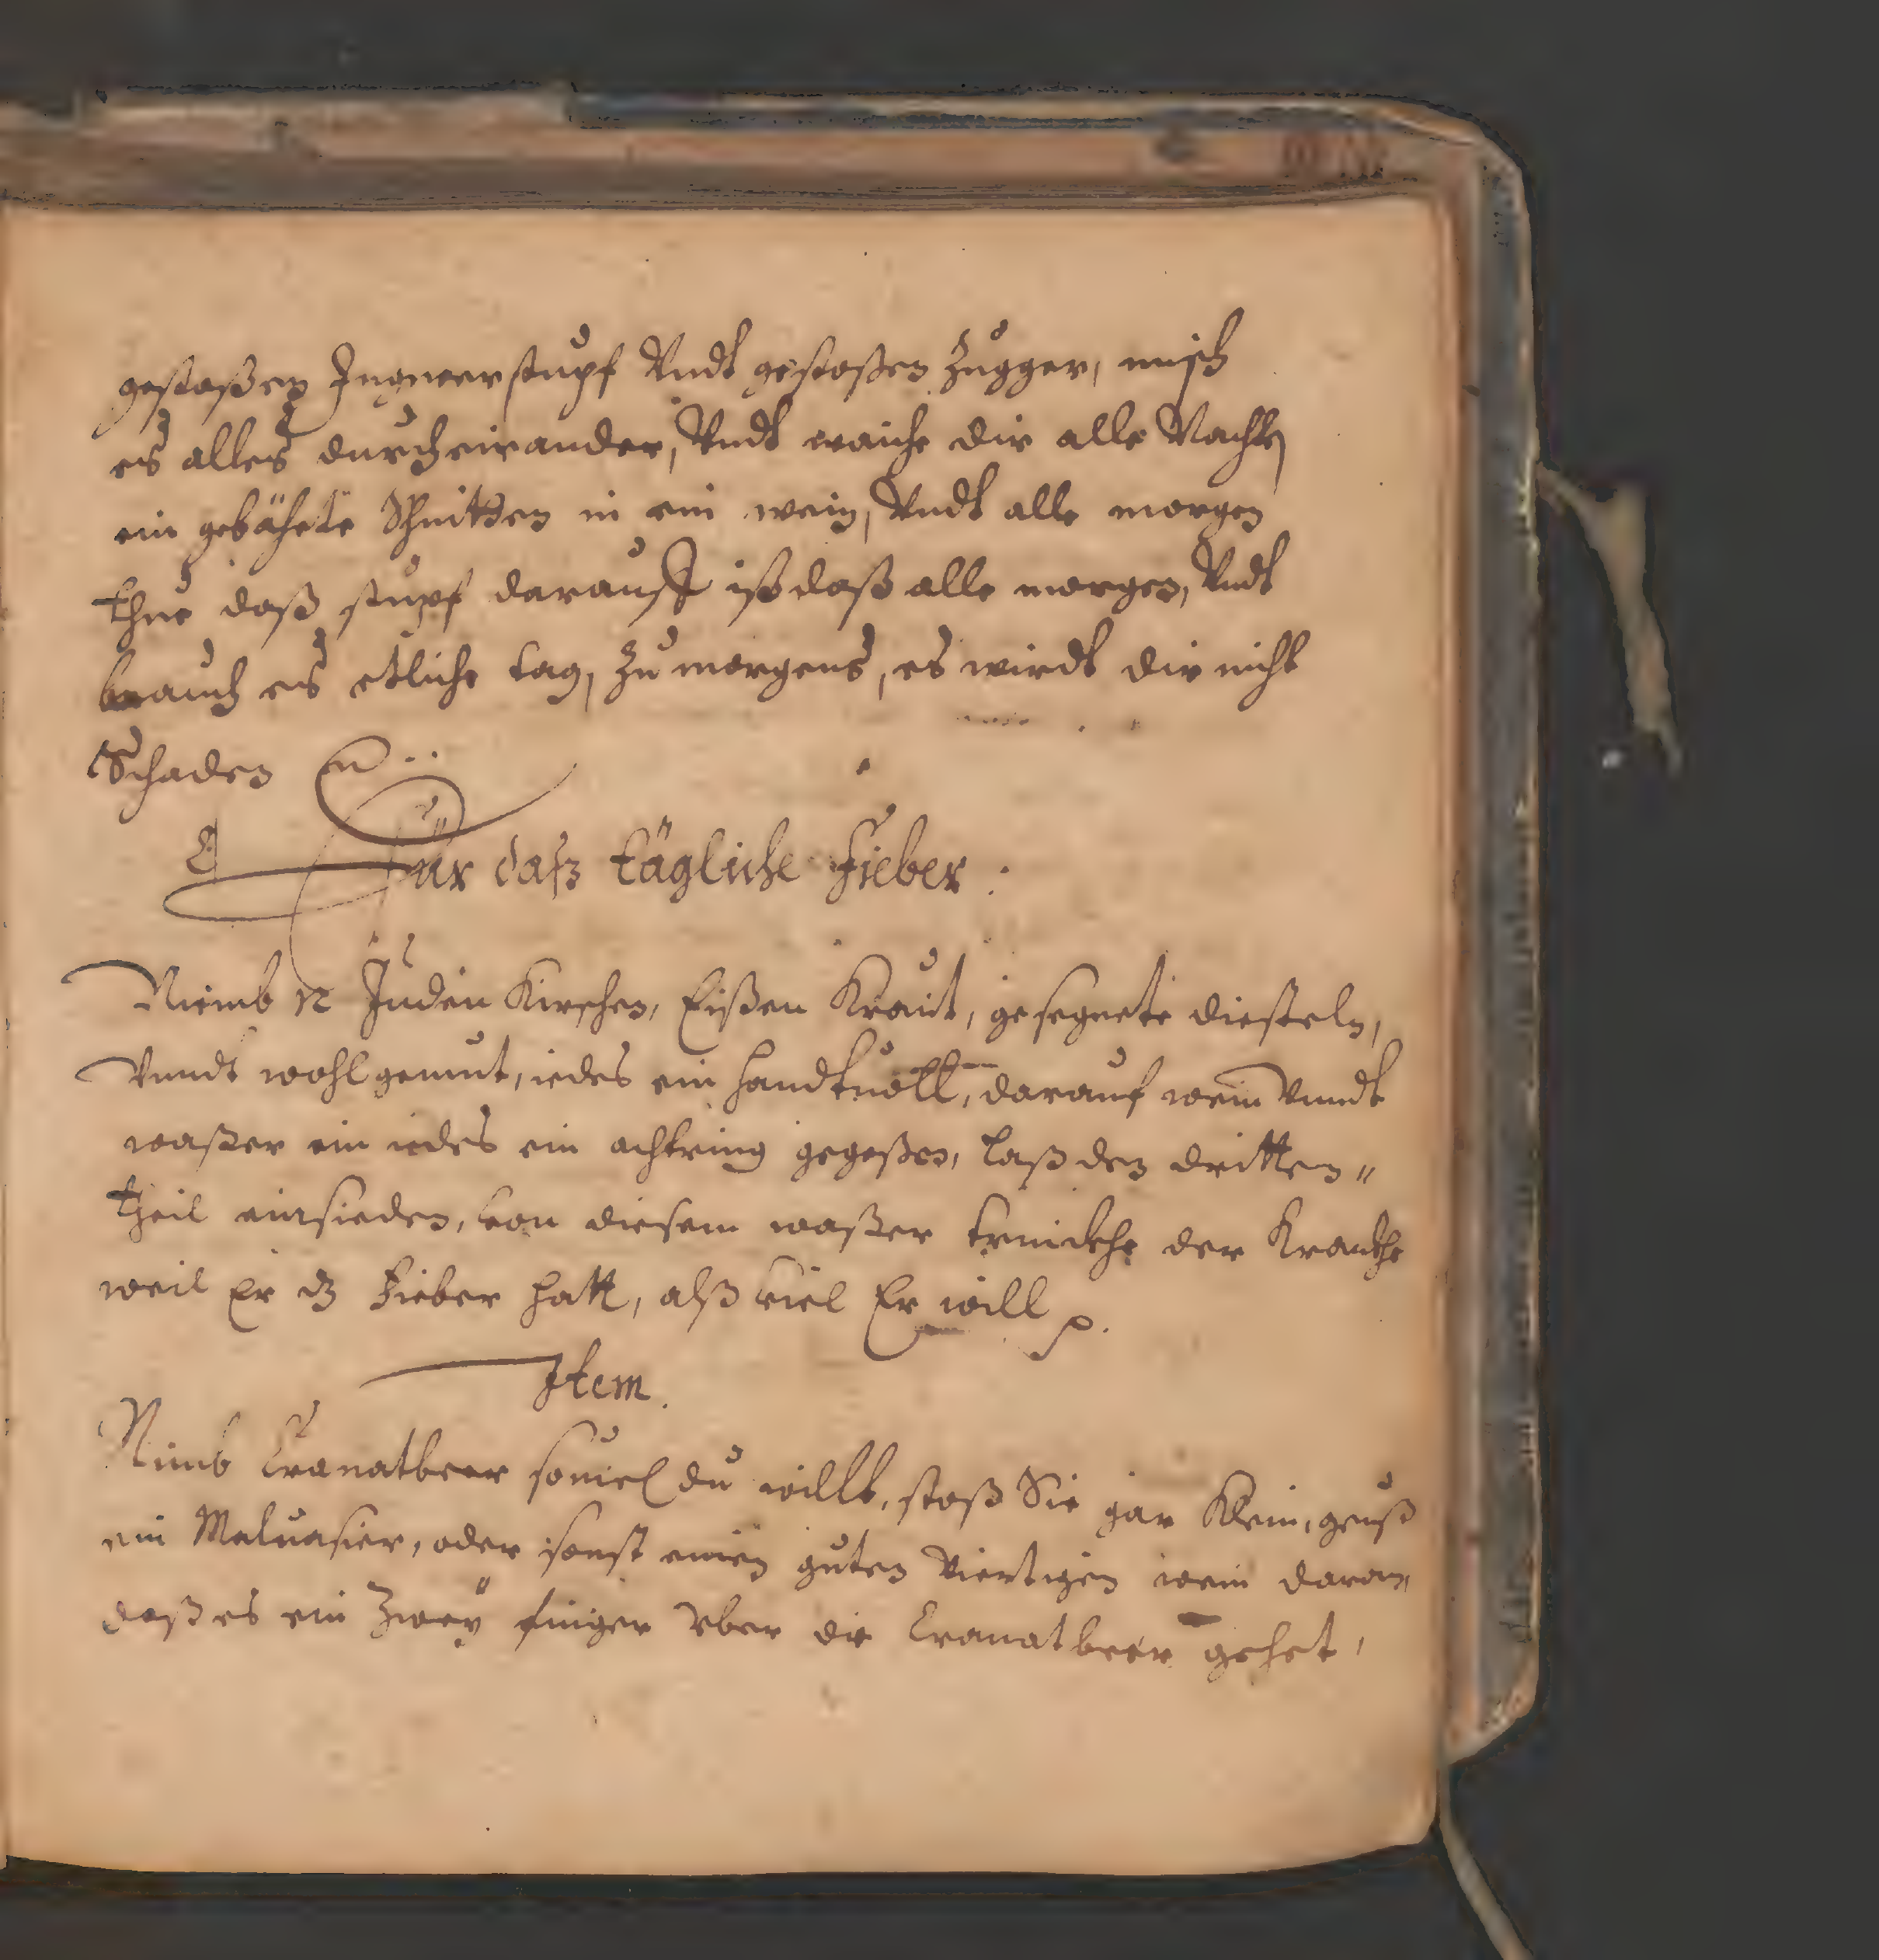 gestoßen Ingweer stupf Vndt gestoßen Zugger, misch
es alles durcheinander, Vndt waiche dir alle Nacht
ein gebähete Schnitten in ein wein, Vndt alle morgen
thue daß stupf darauff iß daß alle morgen, Vndt
brauch es etliche tag, Zu morgens, es wirdt dir nicht
Schaden
Für daß tägliche Fieber :
Niemb 12 Juden Kirschen, Eißen Kraut, gesegnete diesteln,
Vnndt wohlgemut, iedes ein handtuoll, darauf wein Vnndt
waßer ein iedes ein achtring gegoßen, laß den dritten "
theil einsieden, von diesem waßer trinckhe der Kranckhe
weil Er dz Fieber hatt, alß viel Er will
Item.
Nimb Cranatbeer souiel du willt, stoß Sie gar Klein, geuß
ein Maluasier, oder sonst einen guten Viertigen wein daran,
daß es ein Zwey finger Vber die Cranatbeer gehet,